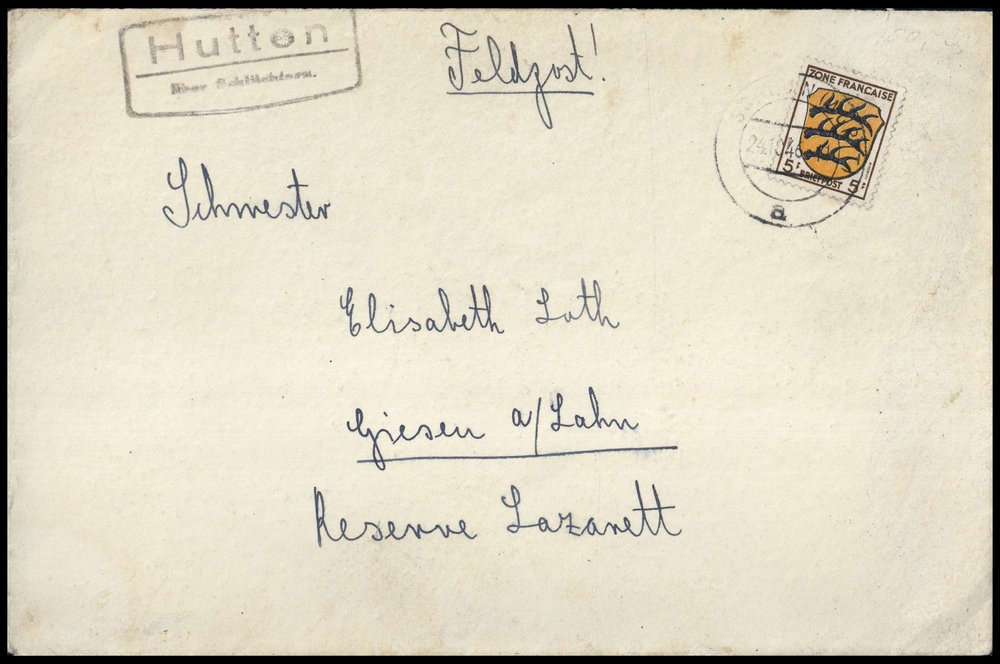 Hutten
über Schlüchtern.
Feldpost!
ZONE FRANÇAISE
5F BRIEFPOST 5F
a
Schwester
Elisabeth Loth
Giesen a/Lahn
Reserve Lazarett